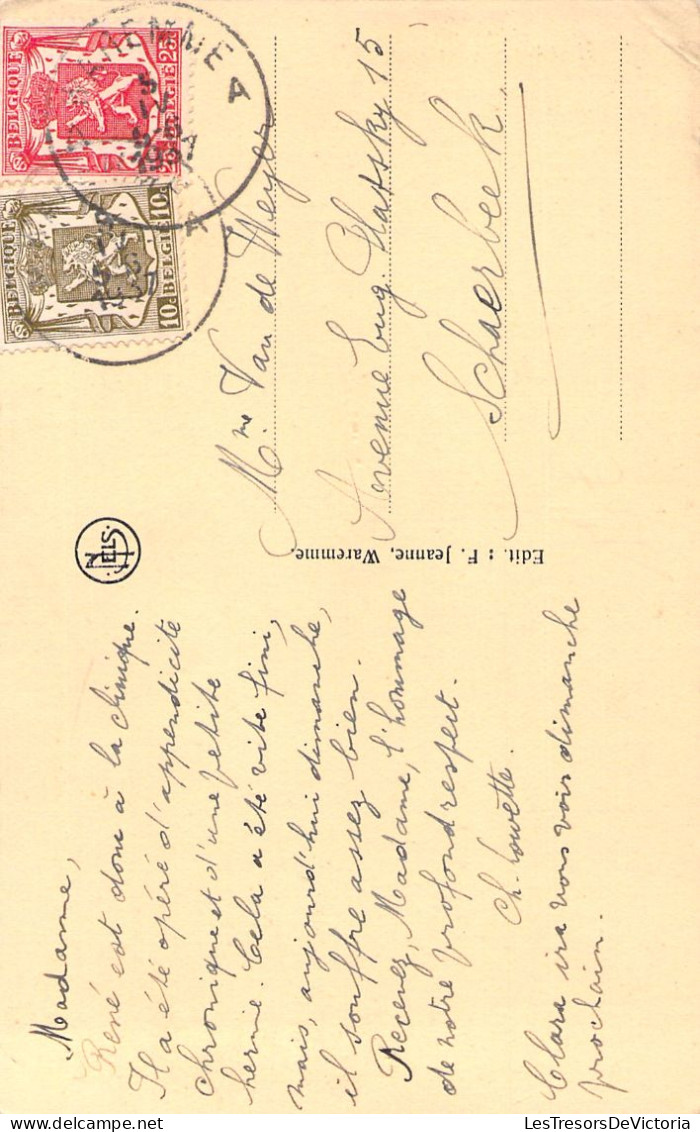 Madame,
René est donc à la clinique.
Il a été opéré d'appendicite
chronique et d'une petite
hernie. Cela a été vite fini,
mais, aujourd'hui dimanche,
il souffre assez bien.
Recevez, Madame, l'hommage
de notre profond respect.
Ch. Lowette.
Clara ira vous voir dimanche
prochain.
NELS
Edit. : F. Jeanne, Waremme.
Mme Van de Weyer
Avenue Eug. Plasky 15
Schaerbeek
BELGIQUE 25c BELGIË
BELGIQUE 10c 10c BELGIË
A
1937
A
1937
LesTresorsDeVictoria